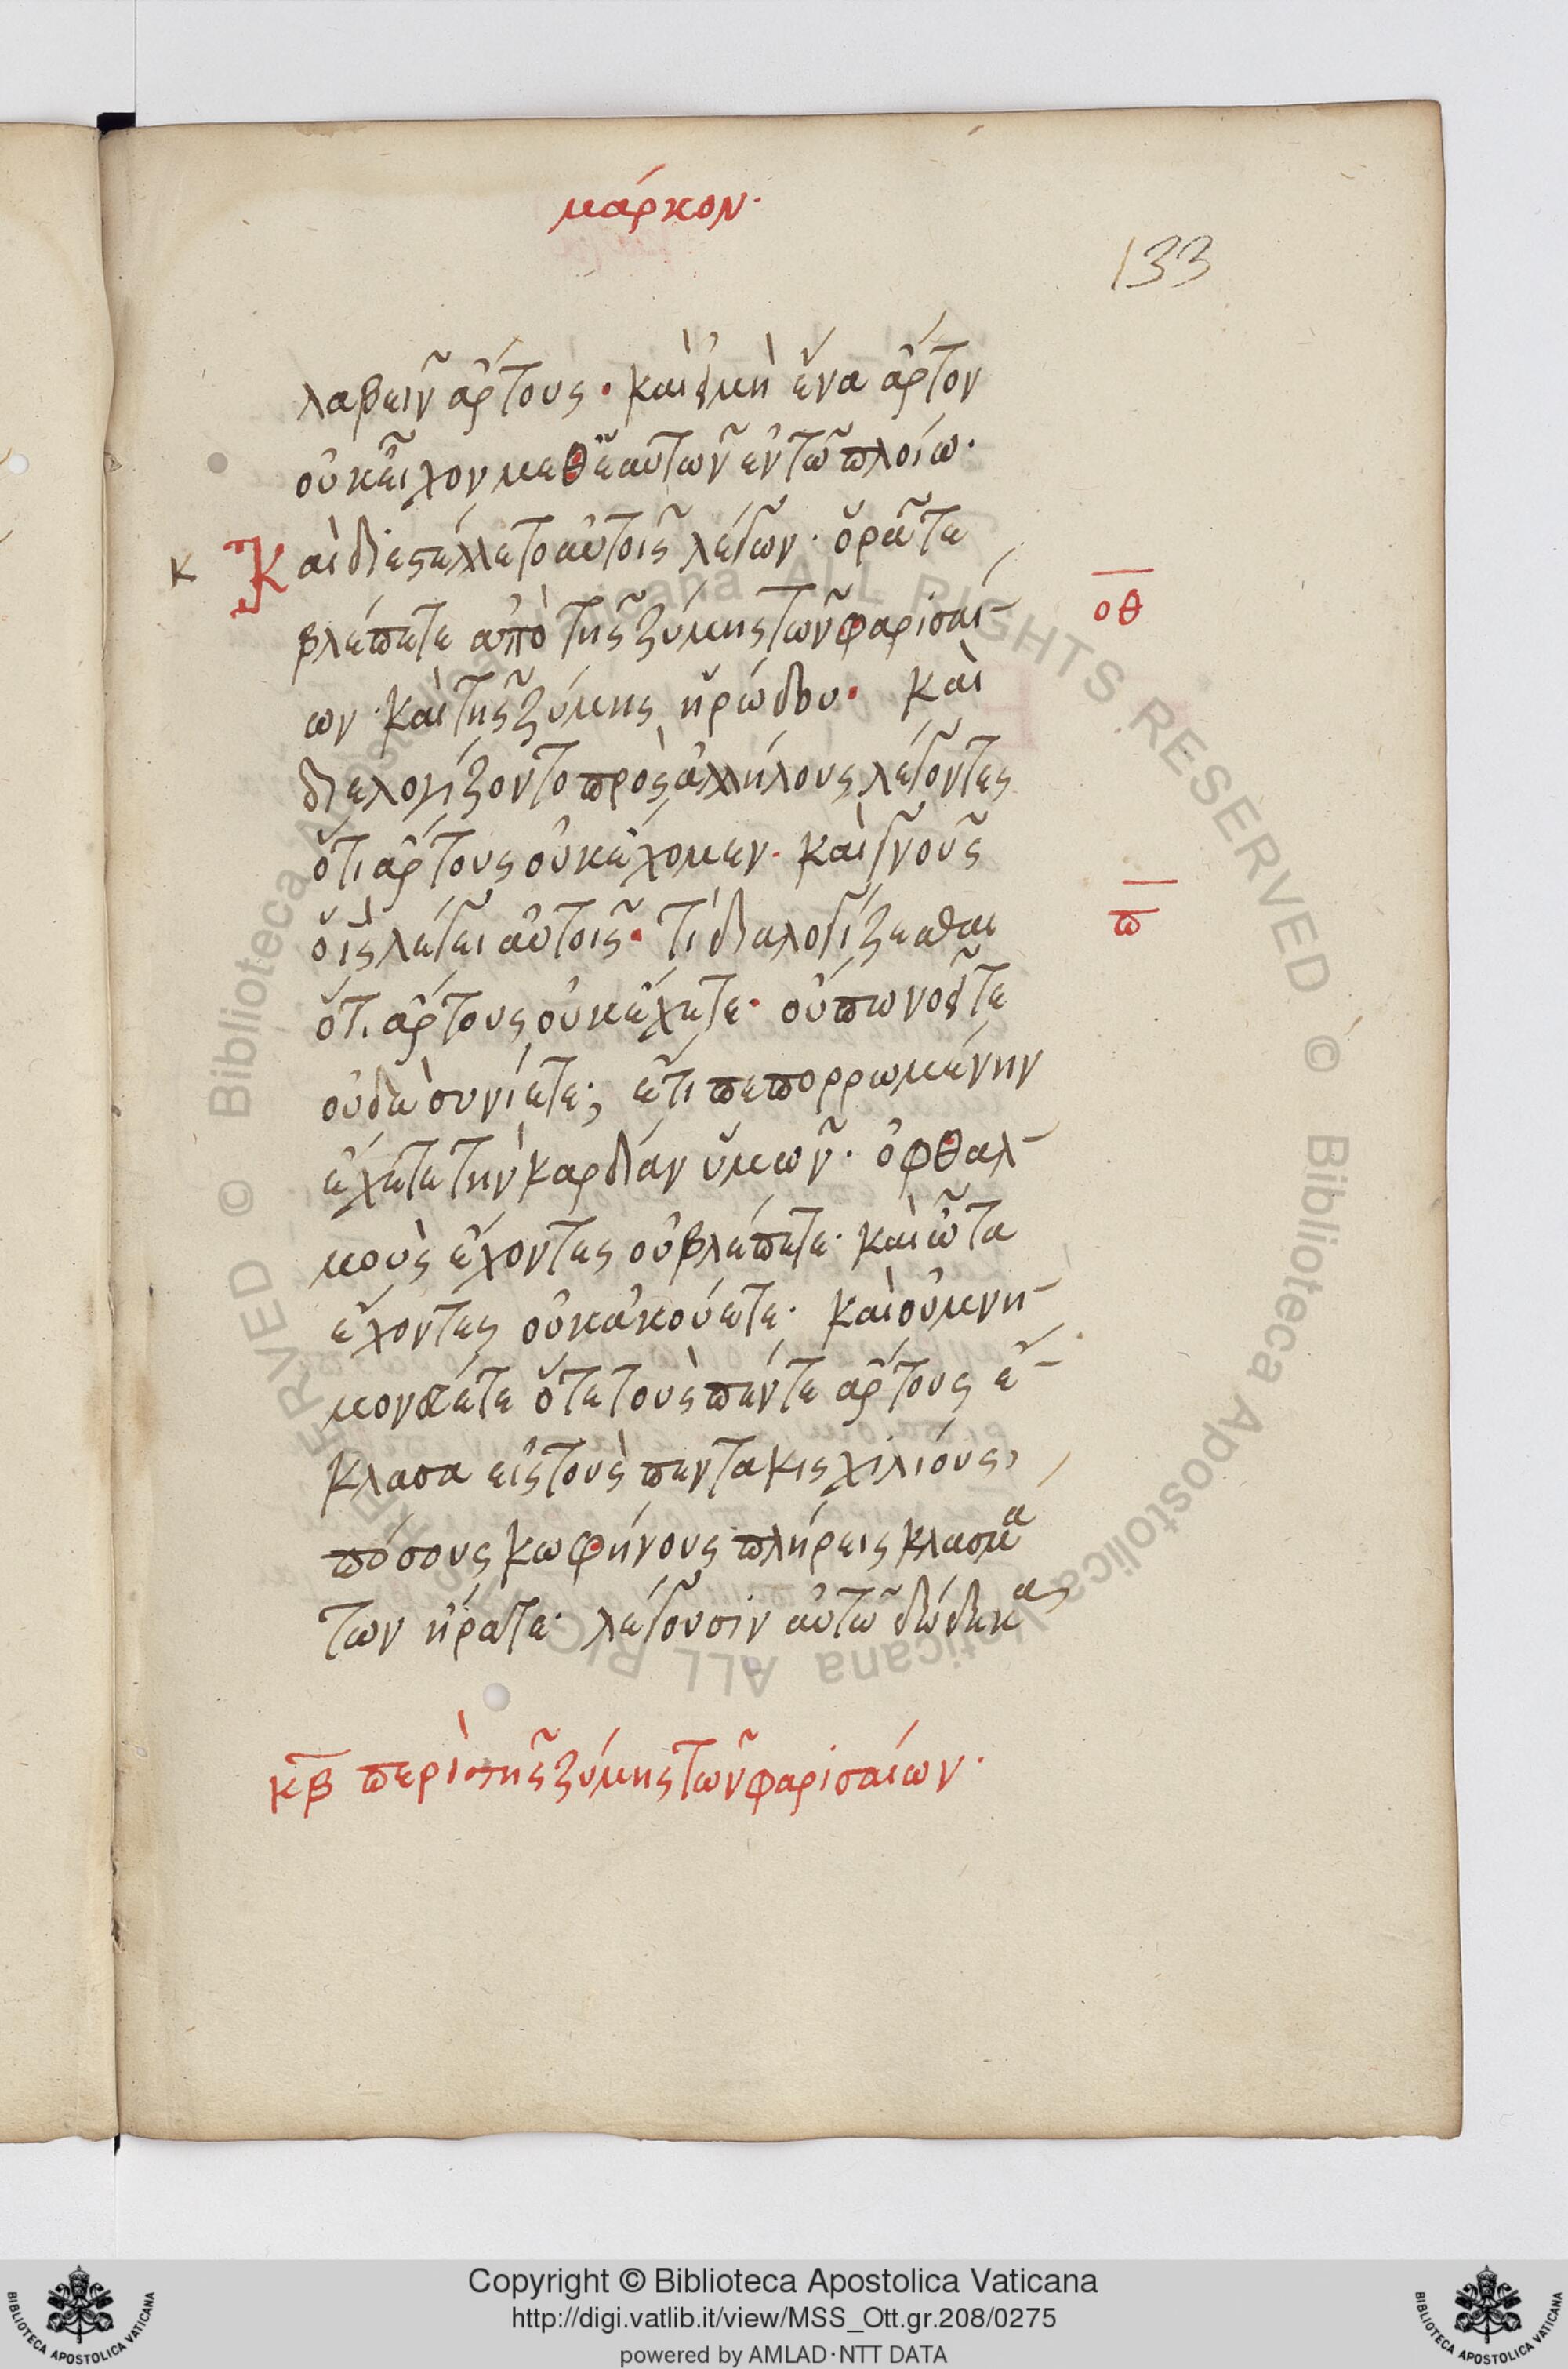 μάρκον.
133
λαβεῖν ἄρτους. καὶ εἰ μὴ ἕνα ἄρτον
οὐκ εἶχον μεθ' ἑαυτῶν ἐν τῶ πλοίω.
κ Καὶ διεστέλλετο αὐτοῖς λέγων. ὁρᾶτε
βλέπετε ἀπὸ τῆς ζύμης τῶν φαρισαί
οθ
ων. καὶ τῆς ζύμης ἡρώδου. καὶ
διελογίζοντο πρὸς ἀλλήλους λέγοντες
ὅτι ἄρτους οὐκ ἔχομεν. καὶ γνοῦς
ὁ ις λέγει αὐτοῖς. τί διαλογίζεσθαι
π
ὅτι ἄρτους οὐκ ἔχετε. οὔπω νοεῖτε
οὐδὲ συνίετε; ἔτι πεπορρωμένην
ἔχετε τὴν καρδίαν ὑμῶν. ὀφθαλ
μοὺς ἔχοντες οὐ βλέπετε. καὶ ὦτα
ἔχοντες οὐκ ἀκούετε. καὶ οὐ μνη
μονεύετε ὅτε τοὺς πέντε ἄρτους ἔ
κλασα εἰς τοὺς πεντακις χιλιόυς,
πόσους κωφήνους πλήρεις κλασμά
των ἤρατε. λέγουσιν αὐτῶ δώδεκα
κβ περὶ τῆς ζύμης τῶν φαρισαίων.
Copyright © Biblioteca Apostolica Vaticana
http://digi.vatlib.it/view/MSS_Ott.gr.208/0275
powered by AMLAD·NTT DATA